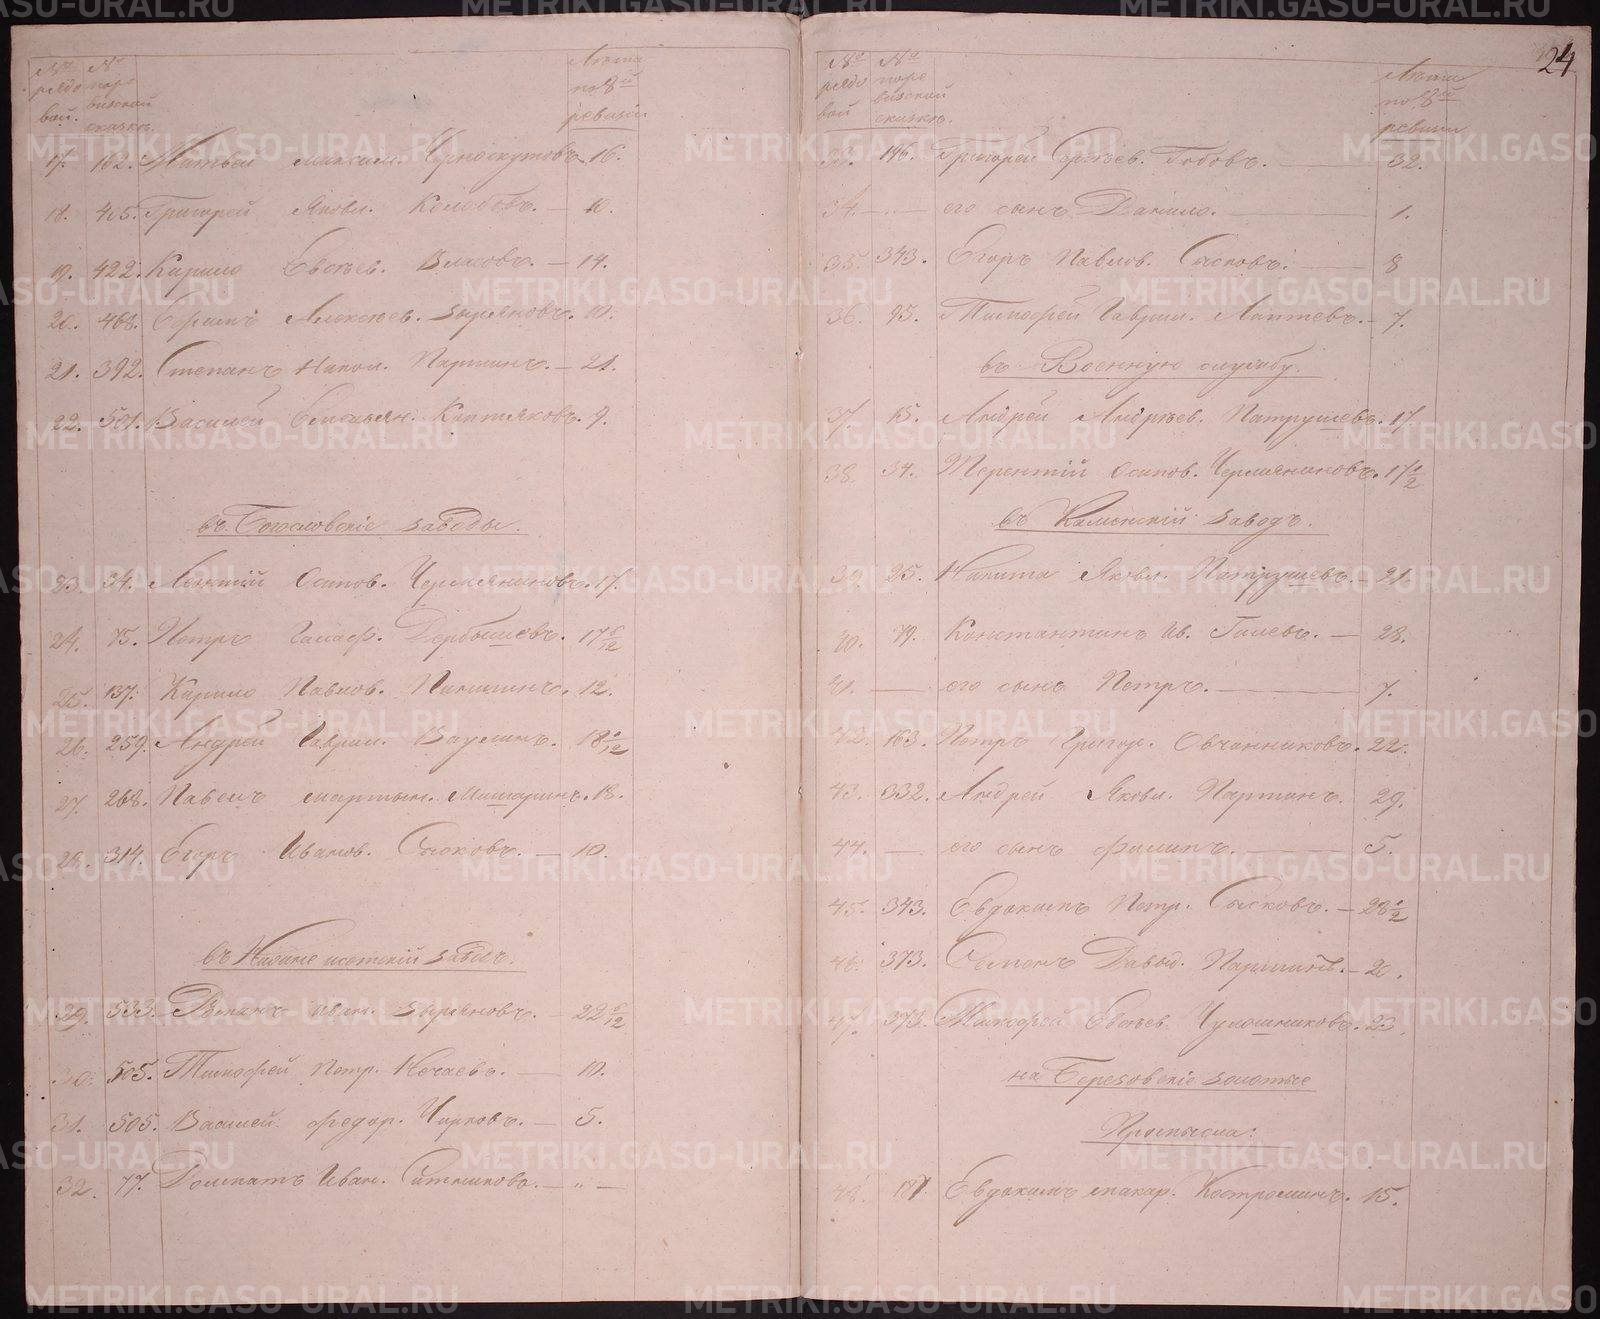 № рядо вой.
№ по ре визской сказкѣ.
Лѣта по 8й ревизіи
17. 162. Матвей Максим. Черноскутовъ 16.
18. 405. Григорей Яковл. Колобовъ. — 10.
19. 422. Кирило Евсѣев. Власовъ. — 14.
20. 468. Ефимъ Алексѣев. Зыряновъ. 10.
21. 392. Степанъ Никол. Паршинъ. — 21.
22. 501. Василей Емельян. Коптяковъ. 9.
въ Богословскіе заводы.
23. 34. Леонтій Осипов. Чермяниновъ. 17.
24. 75. Петръ Галасф. Дербышевъ. 17 6/12
25. 137. Кирило Павлов. Пинигинъ. 12.
26. 259. Андрей Гаврил. Ваулинъ. 18 1/12
27. 268. Павелъ Мартын. Мишаринъ. 18.
28. 314. Егоръ Иванов. Сысковъ. — 10.
въ Нижне исетскій заводъ.
29. 533. Иван. Зыряновъ. — 22 6/12
30. 505. Тимофей Петр. Нечаевъ. — 10.
31. 505. Василей Федор. Чирковъ. — 5.
32. 77. Иван. Ситниковъ. — „ —
24
№ рядо вой
№ по ре визской сказкѣ.
Лѣта по 8й ревизіи
33. 196. Григорей Сергѣев. Бобовъ. — 32.
34. — его сынъ Данило. — 1.
35. 343. Егоръ Павлов. Сысковъ. — 8
36. 95. Тимофей Гаврил. Лаптевъ. — 7.
въ Военную службу.
37. 15. Андрей Андрѣев. Патрушевъ. 17.
38. 34. Терентій Осипов. Чермяниновъ. 17 1/2
въ Каменскій заводъ.
39. 25. Никита Яковл. Патрушевъ. — 21.
40. 79. Константинъ Ив. Гилевъ. — 28.
41. — его сынъ Петръ. — 7.
42. 163. Петръ Григор. Овчинниковъ. 22.
43. 332. Андрей Яковл. Паршинъ. 29.
44. — его сынъ Филипъ. — 5.
45. 343. Евдокимъ Петр. Сысковъ. — 28 1/2
46. 373. Семенъ Давыд. Паршинъ. — 20.
47. 373. Тимофей Евсѣев. Чулошниковъ. 23.
на Березовскіе золотые
Промысла:
48. 187. Евдокимъ Макар. Костроминъ. 15.